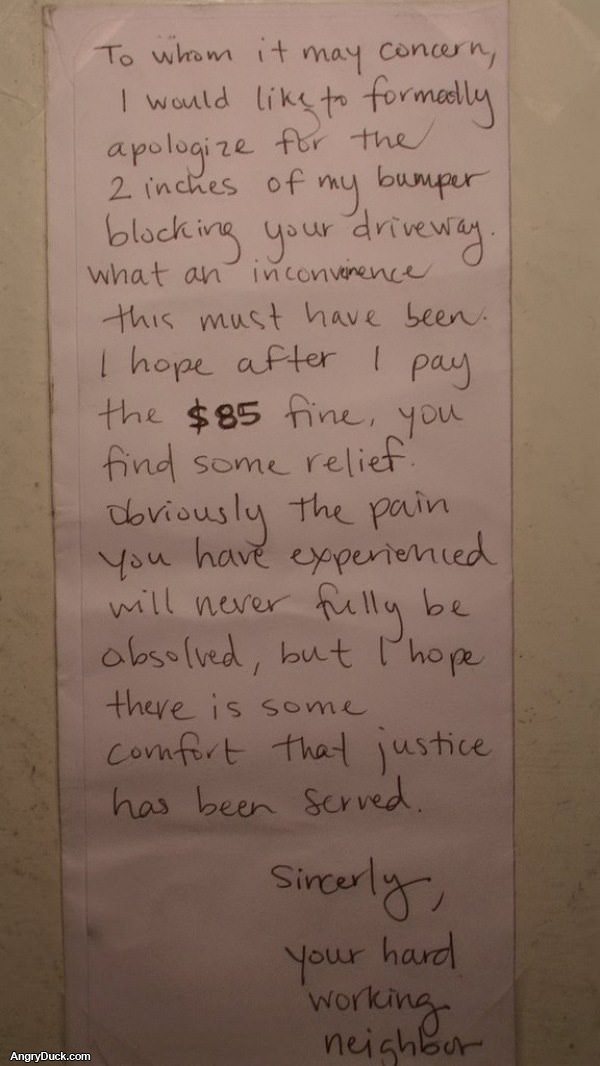 To whom it may concern,
I would like to formally
apologize for the
2 inches of my bumper
blocking your driveway.
what an inconvinence
this must have been.
I hope after I pay
the $85 fine, you
find some relief.
Obviously the pain
you have experienced
will never fully be
absolved, but I hope
there is some
comfort that justice
has been served.
Sincerly,
your hard
working
neighbor
AngryDuck.com